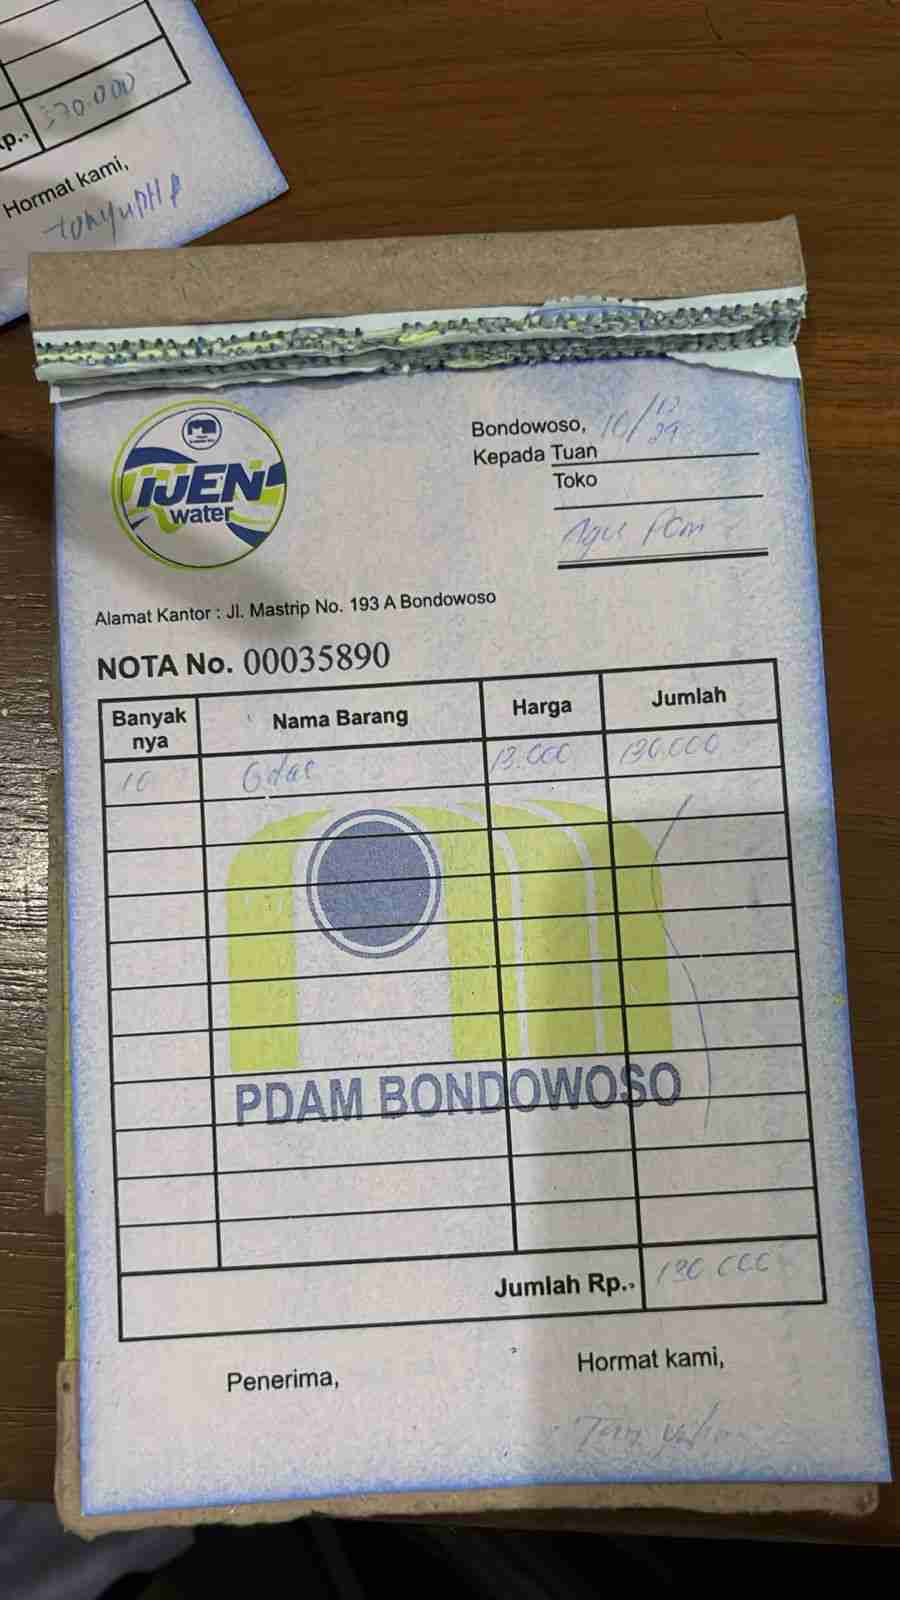 370.000
Rp.,
Hormat kami,
IJEN
water
Bondowoso, 10/12
24
Kepada Tuan
Toko
Agus PDM
Alamat Kantor : Jl. Mastrip No. 193 A Bondowoso
NOTA No. 00035890
Banyak nya Nama Barang Harga Jumlah
10 Gelas 13.000 130.000
PDAM BONDOWOSO
Jumlah Rp., 130 000
Penerima, Hormat kami,